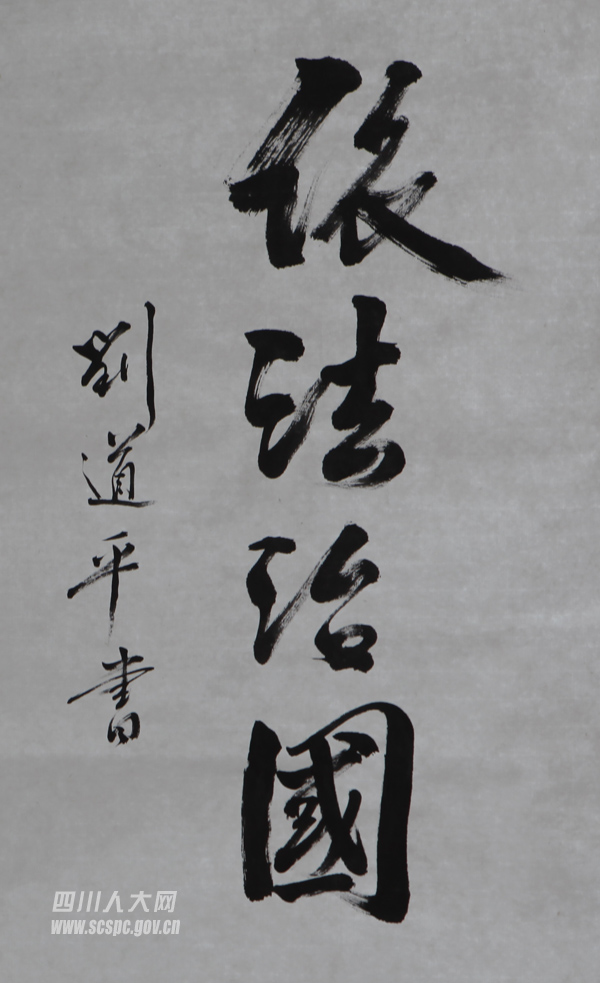 依法治國
劉道平書
四川人大网
www.scspc.gov.cn